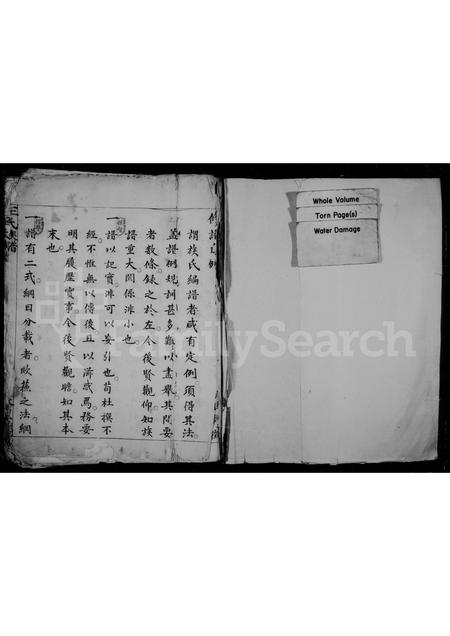 謂族氏編譜者咸有定例須得其法
蓋譜例規訓甚多難以盡舉其間要
者數條錄之於左令後賢觀仰如族
譜重大關係非小也
一譜以記實非可以妄引也苟杜撰不
經不惟無以傳後且以滋惑焉務要
明其履歷實事令後賢觀瞻如其本
末也
一譜有二式綱目分載者歐蘇之法綱
氏族譜
Whole Volume
Torn Page(s)
Water Damage
FamilySearch